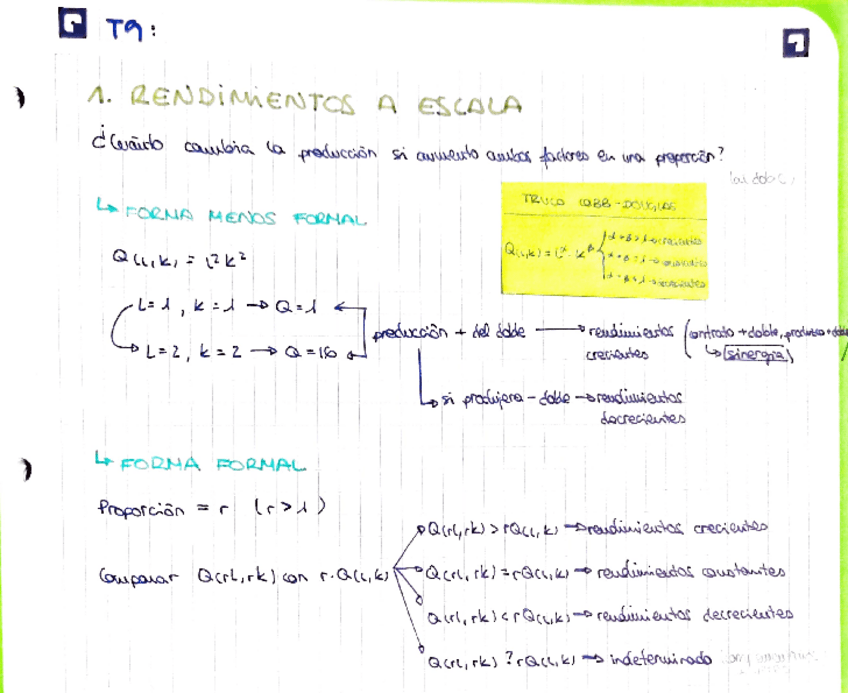 T9:
1. RENDIMIENTOS A ESCALA
¿Cuánto cambia la producción si aumento ambos factores en una proporción?
TRUCO COBB-DOUGLAS
↳ FORMA MENOS FORMAL
Q(L,K) = L² K²
L=1, K=1 → Q=1
L=2, K=2 → Q=16
producción + del doble → rendimientos crecientes (contrato + doble, produzco + doble
↳ sinergia)
↳ si produjera - doble → rendimientos decrecientes
↳ FORMA FORMAL
Proporción = r (r>1)
Comparar Q(rL,rK) con r·Q(L,K)
Q(rL,rK) > rQ(L,K) → rendimientos crecientes
Q(rL,rK) = rQ(L,K) → rendimientos constantes
Q(rL,rK) < rQ(L,K) → rendimientos decrecientes
Q(rL,rK) ? rQ(L,K) → indeterminado